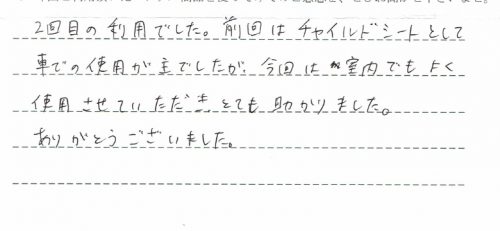 2回目の利用でした。前回はチャイルドシートとして
車での使用が主でしたが、今回は室内でもよく
使用させていただきとても助かりました。
ありがとうございました。